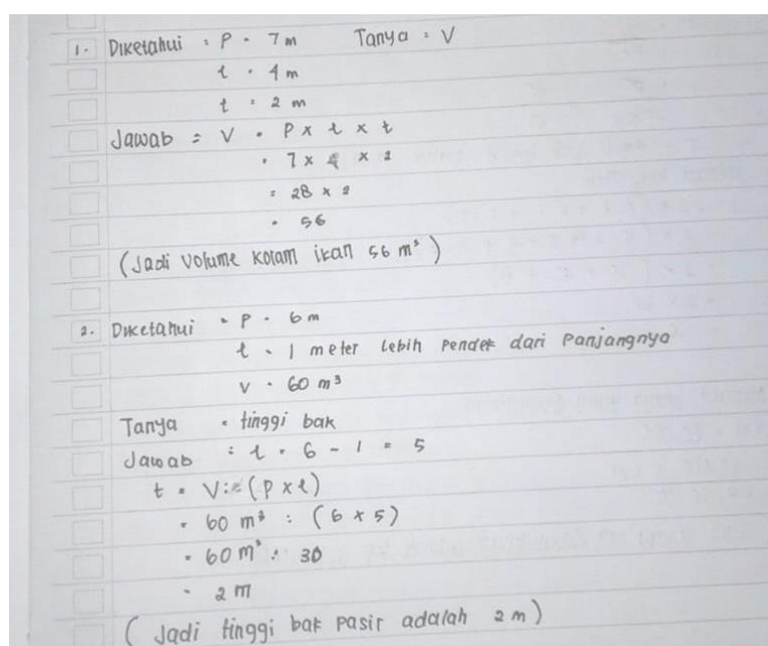 1. Diketahui : P = 7 m Tanya : V
l = 4 m
t = 2 m
Jawab = V = P x l x t
= 7 x 4 x 2
= 28 x 2
= 56
(Jadi volume kolam ikan 56 m³)
2. Diketahui = P = 6 m
l = 1 meter lebih pendek dari panjangnya
v = 60 m³
Tanya = tinggi bak
Jawab : l = 6 - 1 = 5
t = V : (P x l)
= 60 m³ : (6 x 5)
= 60 m³ : 30
= 2 m
( Jadi tinggi bak pasir adalah 2 m )